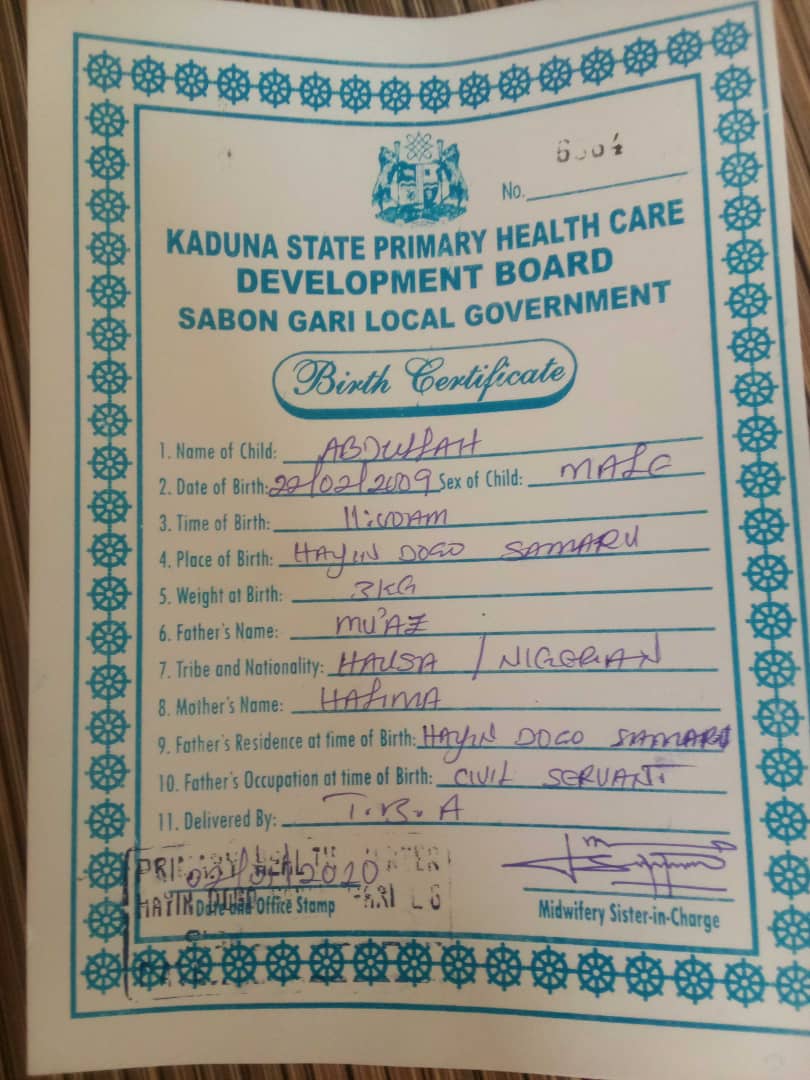 No.
KADUNA STATE PRIMARY HEALTH CARE
DEVELOPMENT BOARD
SABON GARI LOCAL GOVERNMENT
Birth Certificate
1. Name of Child: ABDULLAH
2. Date of Birth: 22/02/2009 Sex of Child: MALE
3. Time of Birth: 11:00AM
4. Place of Birth: HAYIN DOGO SAMARU
5. Weight at Birth: 3KG
6. Father's Name: MU'AZ
7. Tribe and Nationality: HAUSA / NIGERIAN
8. Mother's Name: HALIMA
9. Father's Residence at time of Birth: HAYIN DOGO SAMARU
10. Father's Occupation at time of Birth: CIVIL SERVANT
11. Delivered By: T.B.A
PRIMARY HEALTH
HAYIN DOGO L G
Date and Office Stamp
Midwifery Sister-in-Charge